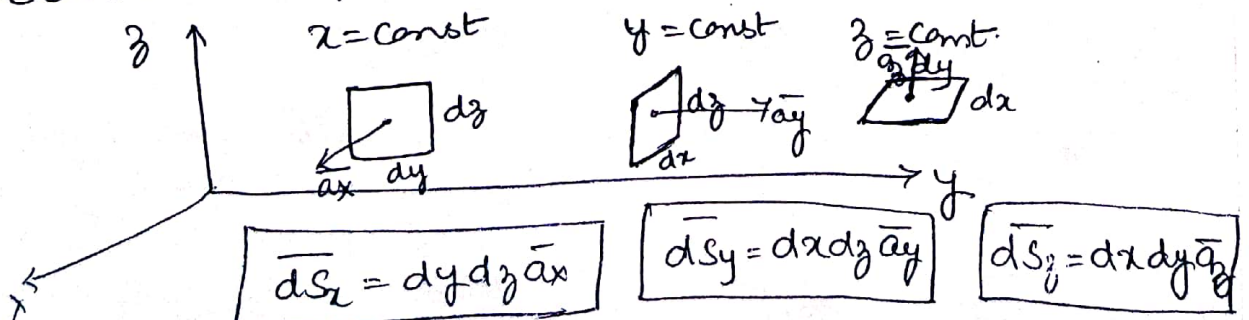 z x = const y = const z = const.
āz dy
dz dz āy dx
āx dy dx
y
x
d̅S̅x = dy dz āx d̅S̅y = dx dz āy d̅S̅z = dx dy āz